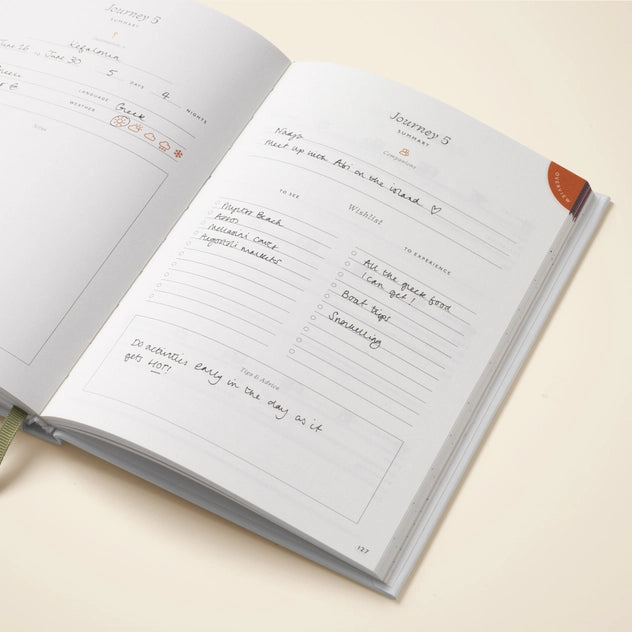 Journey 5
SUMMARY
Kefalonia
June 26 TO June 30 5 DAYS 4 NIGHTS
LANGUAGE Greek
WEATHER
Journey 5
SUMMARY
Companions
meet up with Abi on the island ♡
Wishlist
TO SEE
Myrtos Beach
Assos
Melissani Caves
Argostoli markets
TO EXPERIENCE
All the greek food
I can get!
Boat trips
Snorkelling
Tips & Advice
Do activities early in the day as it
gets HOT!
OVERVIEW
127